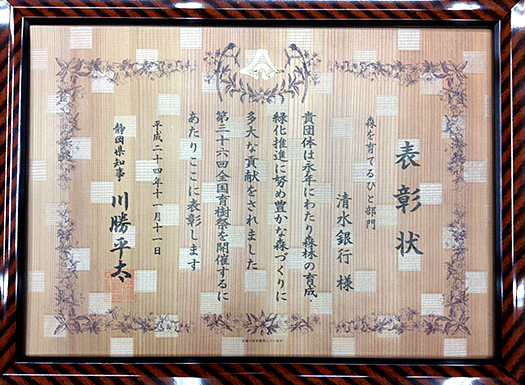 表彰状
森を育てるひと部門
清水銀行 様
貴団体は永年にわたり森林の育成・
緑化推進に努め豊かな森づくりに
多大な貢献をされました
第三十六回全国育樹祭を開催するに
あたりここに表彰します
平成二十四年十一月十一日
静岡県知事 川勝平太